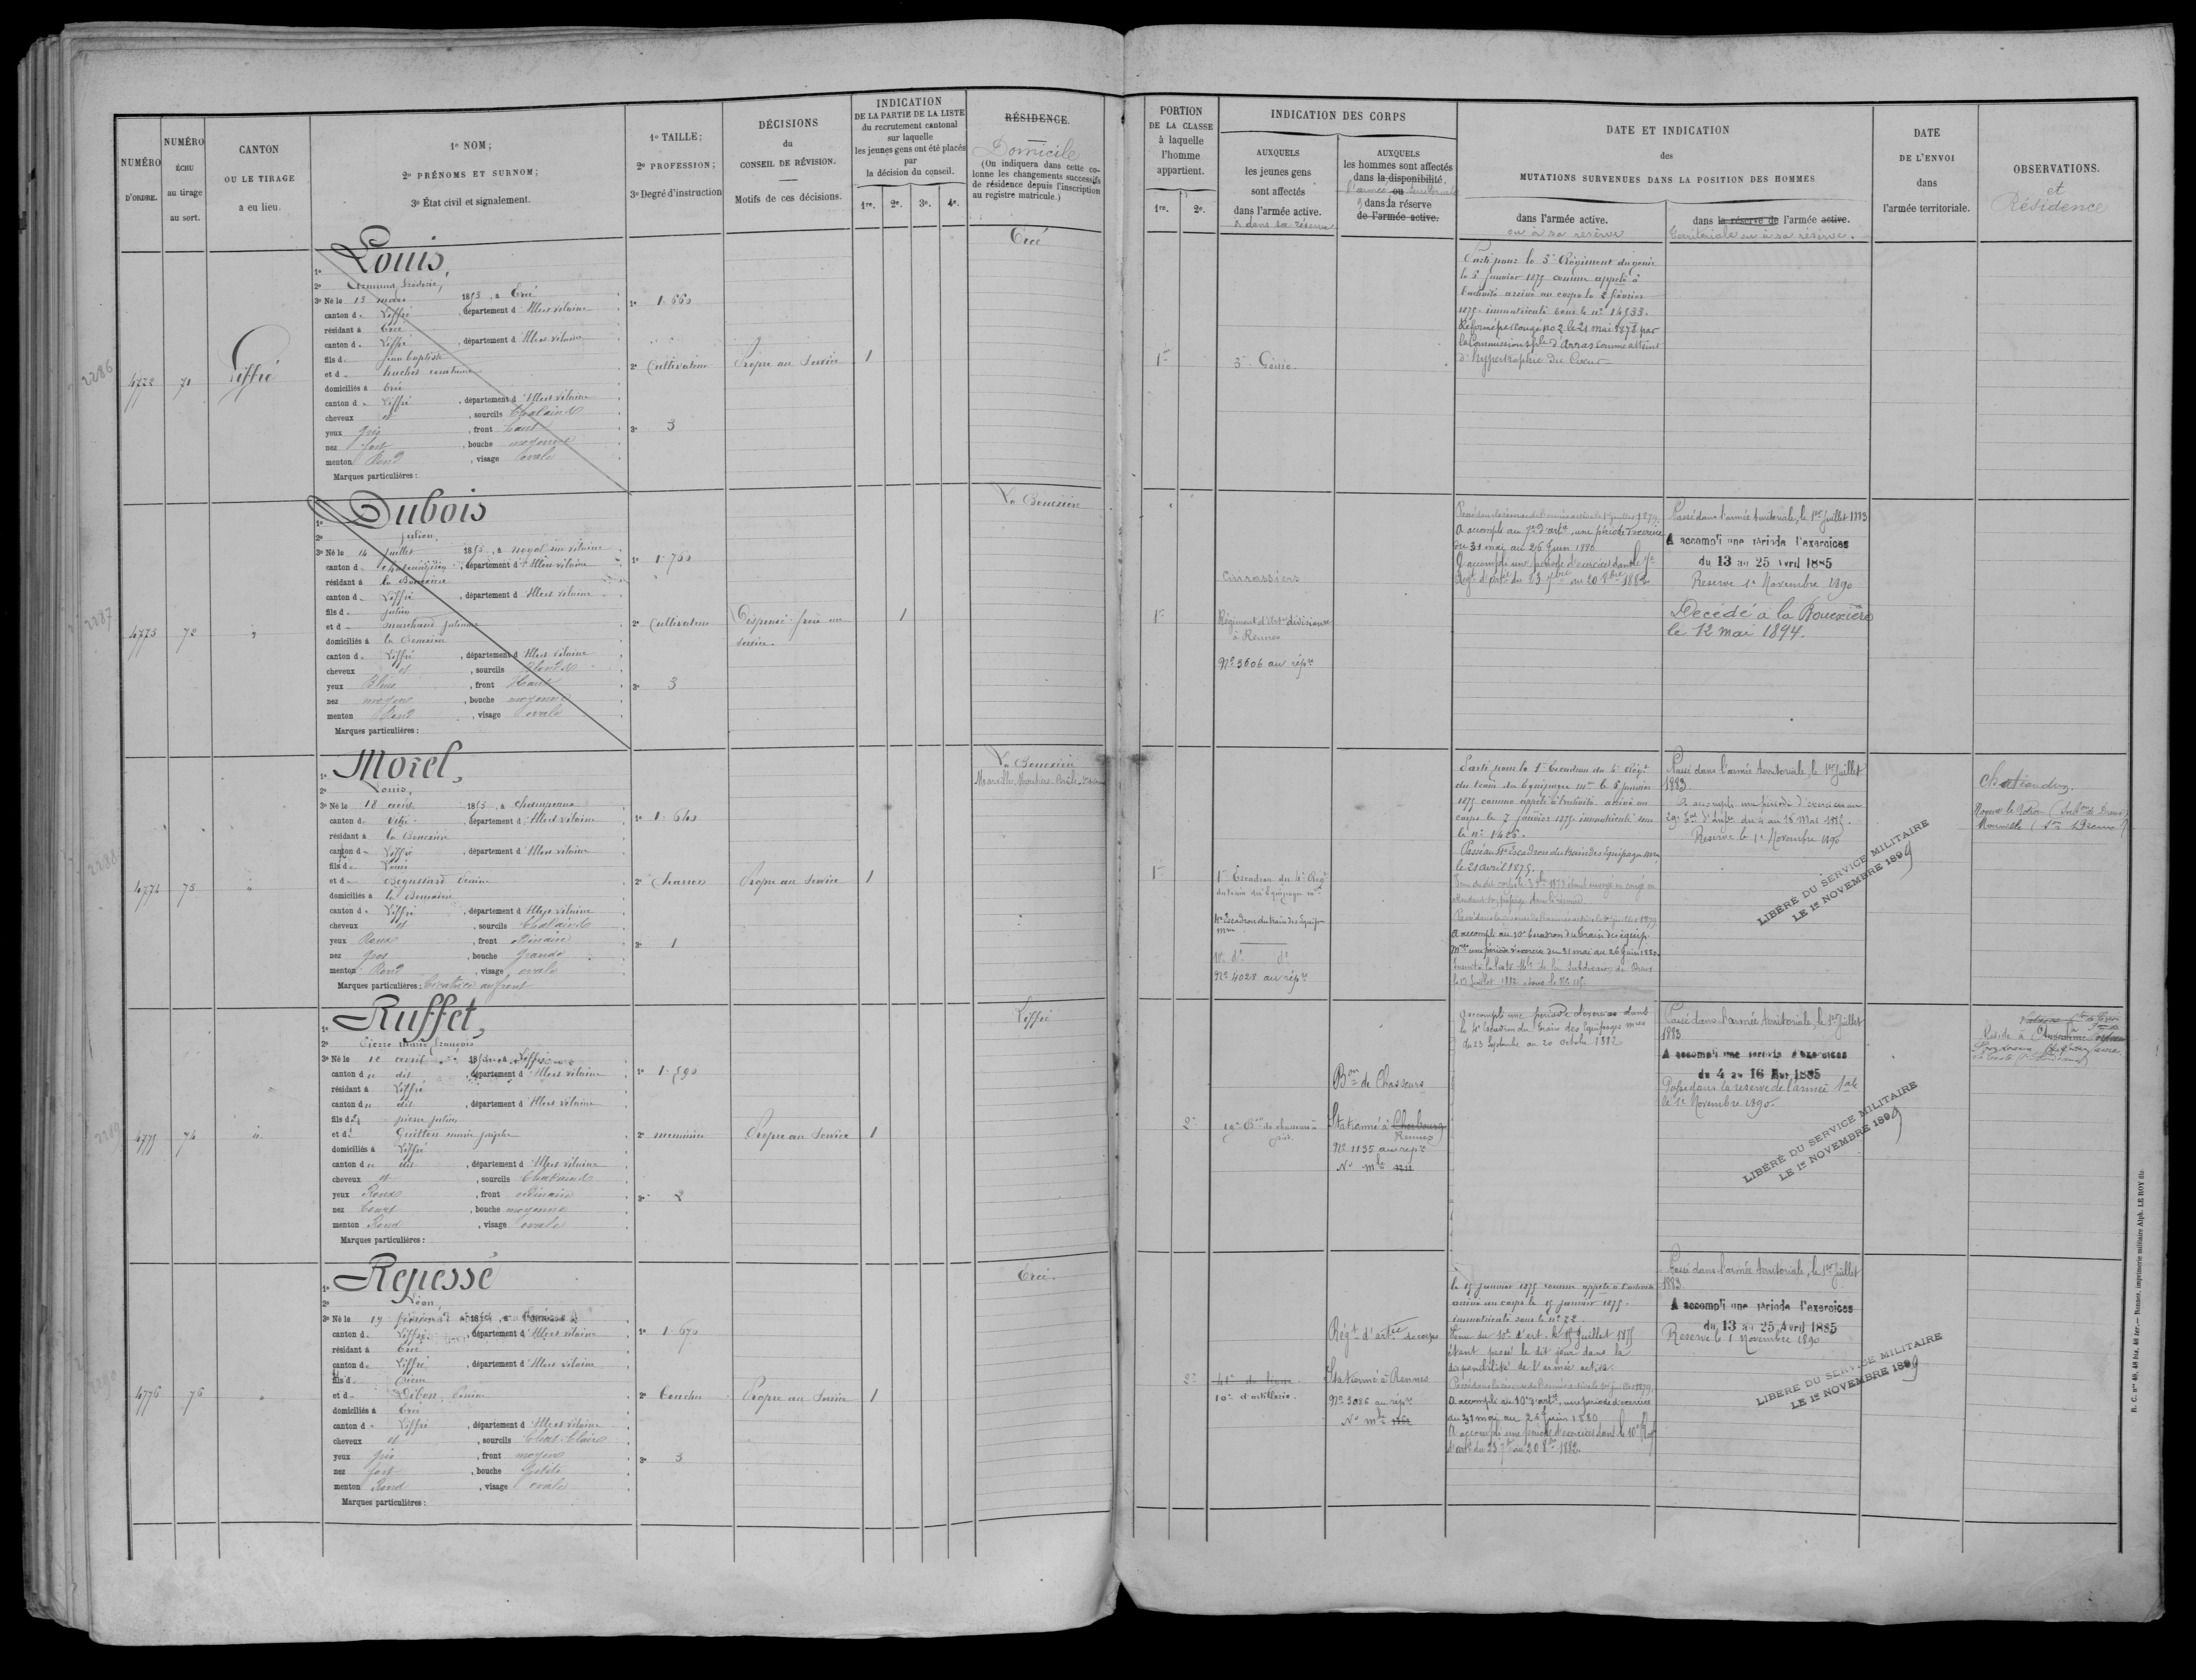 NUMÉRO D'ORDRE.
NUMÉRO ÉCHU au tirage au sort.
CANTON OU LE TIRAGE a eu lieu.
1º NOM;
2º PRÉNOMS ET SURNOM;
3º État civil et signalement.
1º TAILLE;
2º PROFESSION;
3º Degré d'instruction
DÉCISIONS du CONSEIL DE RÉVISION.
Motifs de ces décisions.
INDICATION
DE LA PARTIE DE LA LISTE
du recrutement cantonal
sur laquelle
les jeunes gens ont été placés
par
la décision du conseil.
1re. 2e. 3e. 4e.
RÉSIDENCE.
Domicile
(On indiquera dans cette co-
lonne les changements successifs
de résidence depuis l'inscription
au registre matricule.)
2286
4772
71
Liffré
1º Louis,
2º Armand, frédéric,
3º Né le 13 mars 1853, à Ercé
canton d. Liffré, département d'Ille et vilaine
résidant à Ercé
canton d. Liffré, département d'Ille et vilaine
fils d. jean baptiste
et d.
domiciliés à Ercé
canton d. Liffré, département d'Ille et vilaine
cheveux et, sourcils Chatains
yeux gris, front haut
nez fort, bouche moyenne
menton Rond, visage ovale
Marques particulières :
1º 1.660
2º Cultivateur
3º 3
Propre au Service
1
Ercé
2287
4773
72
1º Dubois
2º Julien,
3º Né le 14 juillet 1853, à noyal sur vilaine
canton d. Chateaugiron, département d'Ille et vilaine
résidant à la Bouexière
canton d. Liffré, département d'Ille et vilaine
fils d. julien
et d. marchand julienne
domiciliés à la Bouexière
canton d. Liffré, département d'Ille et vilaine
cheveux et, sourcils Blonds
yeux Bleus, front Haut
nez moyen, bouche moyenne
menton Rond, visage ovale
Marques particulières :
1º 1.760
2º Cultivateur
3º 3
Dispensé frère au
service.
1
La Bouexière
2288
4774
73
1º Morel,
2º Louis,
3º Né le 18 avril 1853, à champeaux
canton d. Vitré, département d'Ille et vilaine
résidant à la Bouexière
canton d. Liffré, département d'Ille et vilaine
fils d. Louis
et d.
domiciliés à la Bouexière
canton d. Liffré, département d'Ille et vilaine
cheveux et, sourcils Chatains
yeux Roux, front ordinaire
nez gros, bouche grande
menton Rond, visage ovale
Marques particulières : Cicatrice au front
1º 1.640
2º Charron
3º 1
Propre au Service
1
La Bouexière
2289
4775
74
1º Ruffet,
2º Pierre marie françois
3º Né le 10 avril 1853, à Liffré
canton du dit, département d'Ille et vilaine
résidant à Liffré
canton du dit, département d'Ille et vilaine
fils d. pierre julien
et d. Guitton marie josephe
domiciliés à Liffré
canton du dit, département d'Ille et vilaine
cheveux et, sourcils Chatains
yeux Roux, front ordinaire
nez Court, bouche moyenne
menton Rond, visage ovale
Marques particulières :
1º 1.590
2º menuisier
3º 2
Propre au Service
1
Liffré
2290
4776
76
1º Repessé
2º Léon,
3º Né le 19
canton d. Liffré, département d'Ille et vilaine
résidant à Ercé
canton d. Liffré, département d'Ille et vilaine
fils d. Pierre
et d.
domiciliés à Ercé
canton d. Liffré, département d'Ille et vilaine
cheveux et, sourcils Chat. Clairs
yeux gris, front moyen
nez fort, bouche petite
menton Rond, visage ovale
Marques particulières :
1º 1.670
2º Boucher
3º 3
Propre au Service
1
Ercé.
PORTION
DE LA CLASSE
à laquelle
l'homme
appartient.
1re. 2e.
INDICATION DES CORPS
AUXQUELS
les jeunes gens
sont affectés
dans l'armée active.
& dans la réserve
AUXQUELS
les hommes sont affectés
dans la disponibilité
l'armée ou territoriale
& dans la réserve
de l'armée active.
DATE ET INDICATION
des
MUTATIONS SURVENUES DANS LA POSITION DES HOMMES
dans l'armée active.
ou à sa réserve
dans la réserve de l'armée active.
territoriale ou à sa réserve.
DATE
DE L'ENVOI
dans
l'armée territoriale.
OBSERVATIONS.
et
Résidence
1re
3e Génie.
Parti pour le 3e Régiment du génie
le 5 janvier 1875 comme appelé à
l'activité arrivé au corps le 2 février
1875. immatriculé sous le nº 14533.
Réformé par Congé nº 2 le 21 mai 1878 par
la Commission sple d'Arras comme atteint
d'hypertrophie du Coeur
1re
Cuirassiers
Régiment d'Artie divisionre
à Rennes
Nº 3606 au répre
A accompli au 7e d'artie, une période d'exercice
du 31 mai au 26 Juin 1880
A accompli une période d'exercices dans le 7e
Régt d'artie du 23 7bre au 20 8bre 1882
Passé dans l'armée territoriale, le 1er Juillet 1883
A accompli une période d'exercices
du 13 au 25 Avril 1885
Reserve 1er Novembre 1890
Décédé à la Bouexière
le 12 mai 1894.
1re
1er Escadron du 4e Régt
du train des Equipages mres
4e Escadron du train des Equipages
mres
10e do do
Nº 4028 au répre
Parti pour le 1er Escadron du 4e Régt
du train des Equipages mres le 5 janvier
1875 comme appelé à l'activité arrivé au
corps le 7 janvier 1875. immatriculé sous
le nº 1426.
Passé au 4e Escadron du train des Equipages mres
le 21 avril 1875.
A accompli au 10e Escadron du train des équip.
mres une période d'exercice du 31 mai au 26 Juin 1880.
Passé dans l'armée territoriale, le 1er Juillet
1883
A accompli une période d'exercices au
Reserve le 1er Novembre 1890
LIBÉRÉ DU SERVICE MILITAIRE
LE 1er NOVEMBRE 1899
2e
19e Bon de chasseurs à
pied.
Bon de Chasseurs
Stationné à Cherbourg
Rennes
Nº 1135 au répre
Nº mle
A accompli une période d'exercices dans
le 4e Escadron du Train des Equipages mres
du 23 Septembre au 20 octobre 1882
Passé dans l'armée territoriale, le 1er Juillet
1883
A accompli une période d'exercices
du 4 au 16 Mai 1885
Passé dans la réserve de l'armée tale
le 1er Novembre 1890.
LIBÉRÉ DU SERVICE MILITAIRE
LE 1er NOVEMBRE 1899
Réside à
2e
41e de ligne.
10e d'artillerie.
Régt d'artie de corps
Stationné à Rennes
Nº 3086 au répre
Nº mle
le 15 janvier 1875 comme appelé à l'activité
arrivé au corps le 15 janvier 1875.
immatriculé sous le nº 22.
Venu du 10e d'art. le 15 Juillet 1875
étant passé le dit jour dans la
disponibilité de l'armée active.
A accompli au 10e d'artie, une période d'exercices
du 31 mai au 26 Juin 1880
A accompli une période d'exercices dans le 10e Régt
d'artie du 23 7bre au 20 8bre 1882.
Passé dans l'armée territoriale, le 1er Juillet
1883.
A accompli une période d'exercices
du 13 au 25 Avril 1885
Reserve le 1 Novembre 1890
LIBÉRÉ DU SERVICE MILITAIRE
LE 1er NOVEMBRE 1899
R. C. nos 40, 48 bis, 48 ter.— Rennes, imprimerie militaire Alph. LE ROY fils